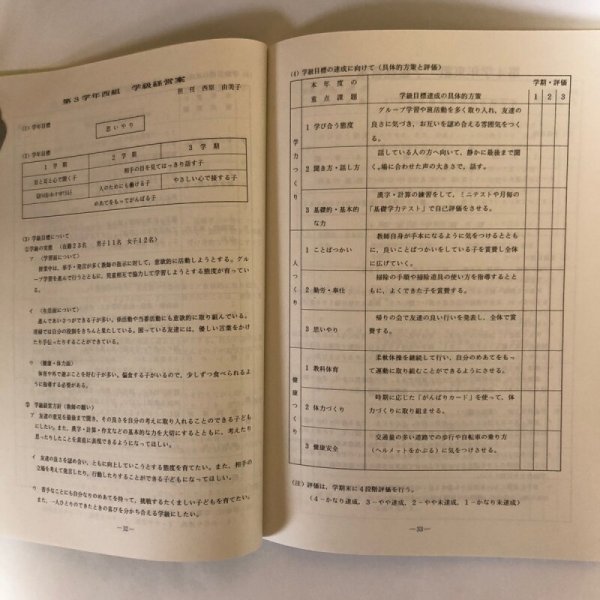 第3学年西組　学級経営案
担任 西原 由美子
(1) 学年目標
思いやり
(2) 学期目標
1学期　2学期　3学期
目と耳と心で聞く子　相手の目を見てはっきり話す子
人のためにも働ける子　やさしい心で接する子
めあてをもってがんばる子
(3) 学級目標について
①学級の実態（在籍23名　男子11名　女子12名）
ア　(学習面について)
授業中は、挙手・発言が多く教師の指示に対して、意欲的に活動しようとする。グル
ープ学習を進んで行うとともに、児童相互で協力して学習しようとする態度が育ってい
る。
イ　(生活面について)
進んであいさつができる子が多い。係活動や当番活動にも意欲的に取り組んでいる。
清掃では自分の役割をきちんと果たしている。困っている友達には、優しい言葉をかけ
たり手伝ったりすることができている。
ウ　(健康・体力面)
体育や外で遊ぶことを好む子が多い。偏食する子がいるので、少しずつ食べられるよ
うに指導する必要がある。
② 学級経営方針（教師の願い）
ア　友達の意見を最後まで聞き、その良さを自分の考えに取り入れることのできる子ども
にしたい。また、漢字・計算・作文などの基本的な力を大切にするとともに、考えたり
思ったりしたことを素直に表現できるようになってほしい。
イ　友達の良さを認め合い、ともに向上としていこうとする態度を育てたい。また、相手の
立場を考えて発言したり、行動したりすることができる子どもになってほしい。
ウ　苦手なことにも自分なりのめあてを持って、挑戦するたくましい子どもを育てたい。
また、一人ひとりのできたときの喜びを分かち合える学級にしたい。
—32—
(4) 学級目標の達成に向けて（具体的方策と評価）
本年度の重点課題　学級目標達成の具体的方策　学期・評価
1　2　3
学力つくり
1 学び合う態度
グループ学習や班活動を多く取り入れ、友達の
良さに気づき、お互いを認め合える雰囲気をつく
る。
2 聞き方・話し方
話している人の方へ向いて、静かに最後まで聞
く。場に合わせた声の大きさで、話す。
3 基礎的・基本的な力
漢字・計算の練習をして、ミニテストや月毎の
「基礎学力テスト」で自己評価をさせる。
1 ことばつかい
教師自身が手本になるように気をつけるととも
に、良いことばつかいをしている子を賞賛し全体
に広げていく。
2 勤労・奉仕
掃除の手順や掃除道具の使い方を指導するとと
もに、よくできた子を賞賛する。
3 思いやり
帰りの会で友達の良い行いを発表し、全体で賞
賛する。
健康つくり
1 教科体育
柔軟体操を継続して行い、自分のめあてをもっ
て運動に取り組むことができるようにさせる。
2 体力づくり
時期に応じた「がんばりカード」を使って、体
力づくりに取り組ませる。
3 健康安全
交通量の多い道路での歩行や自転車の乗り方
（ヘルメットをかぶる）に気をつけさせる。
(注) 評価は、学期末に4段階評価を行う。
（4－かなり達成、3－やや達成、2－やや未達成、1－かなり未達成）
—33—